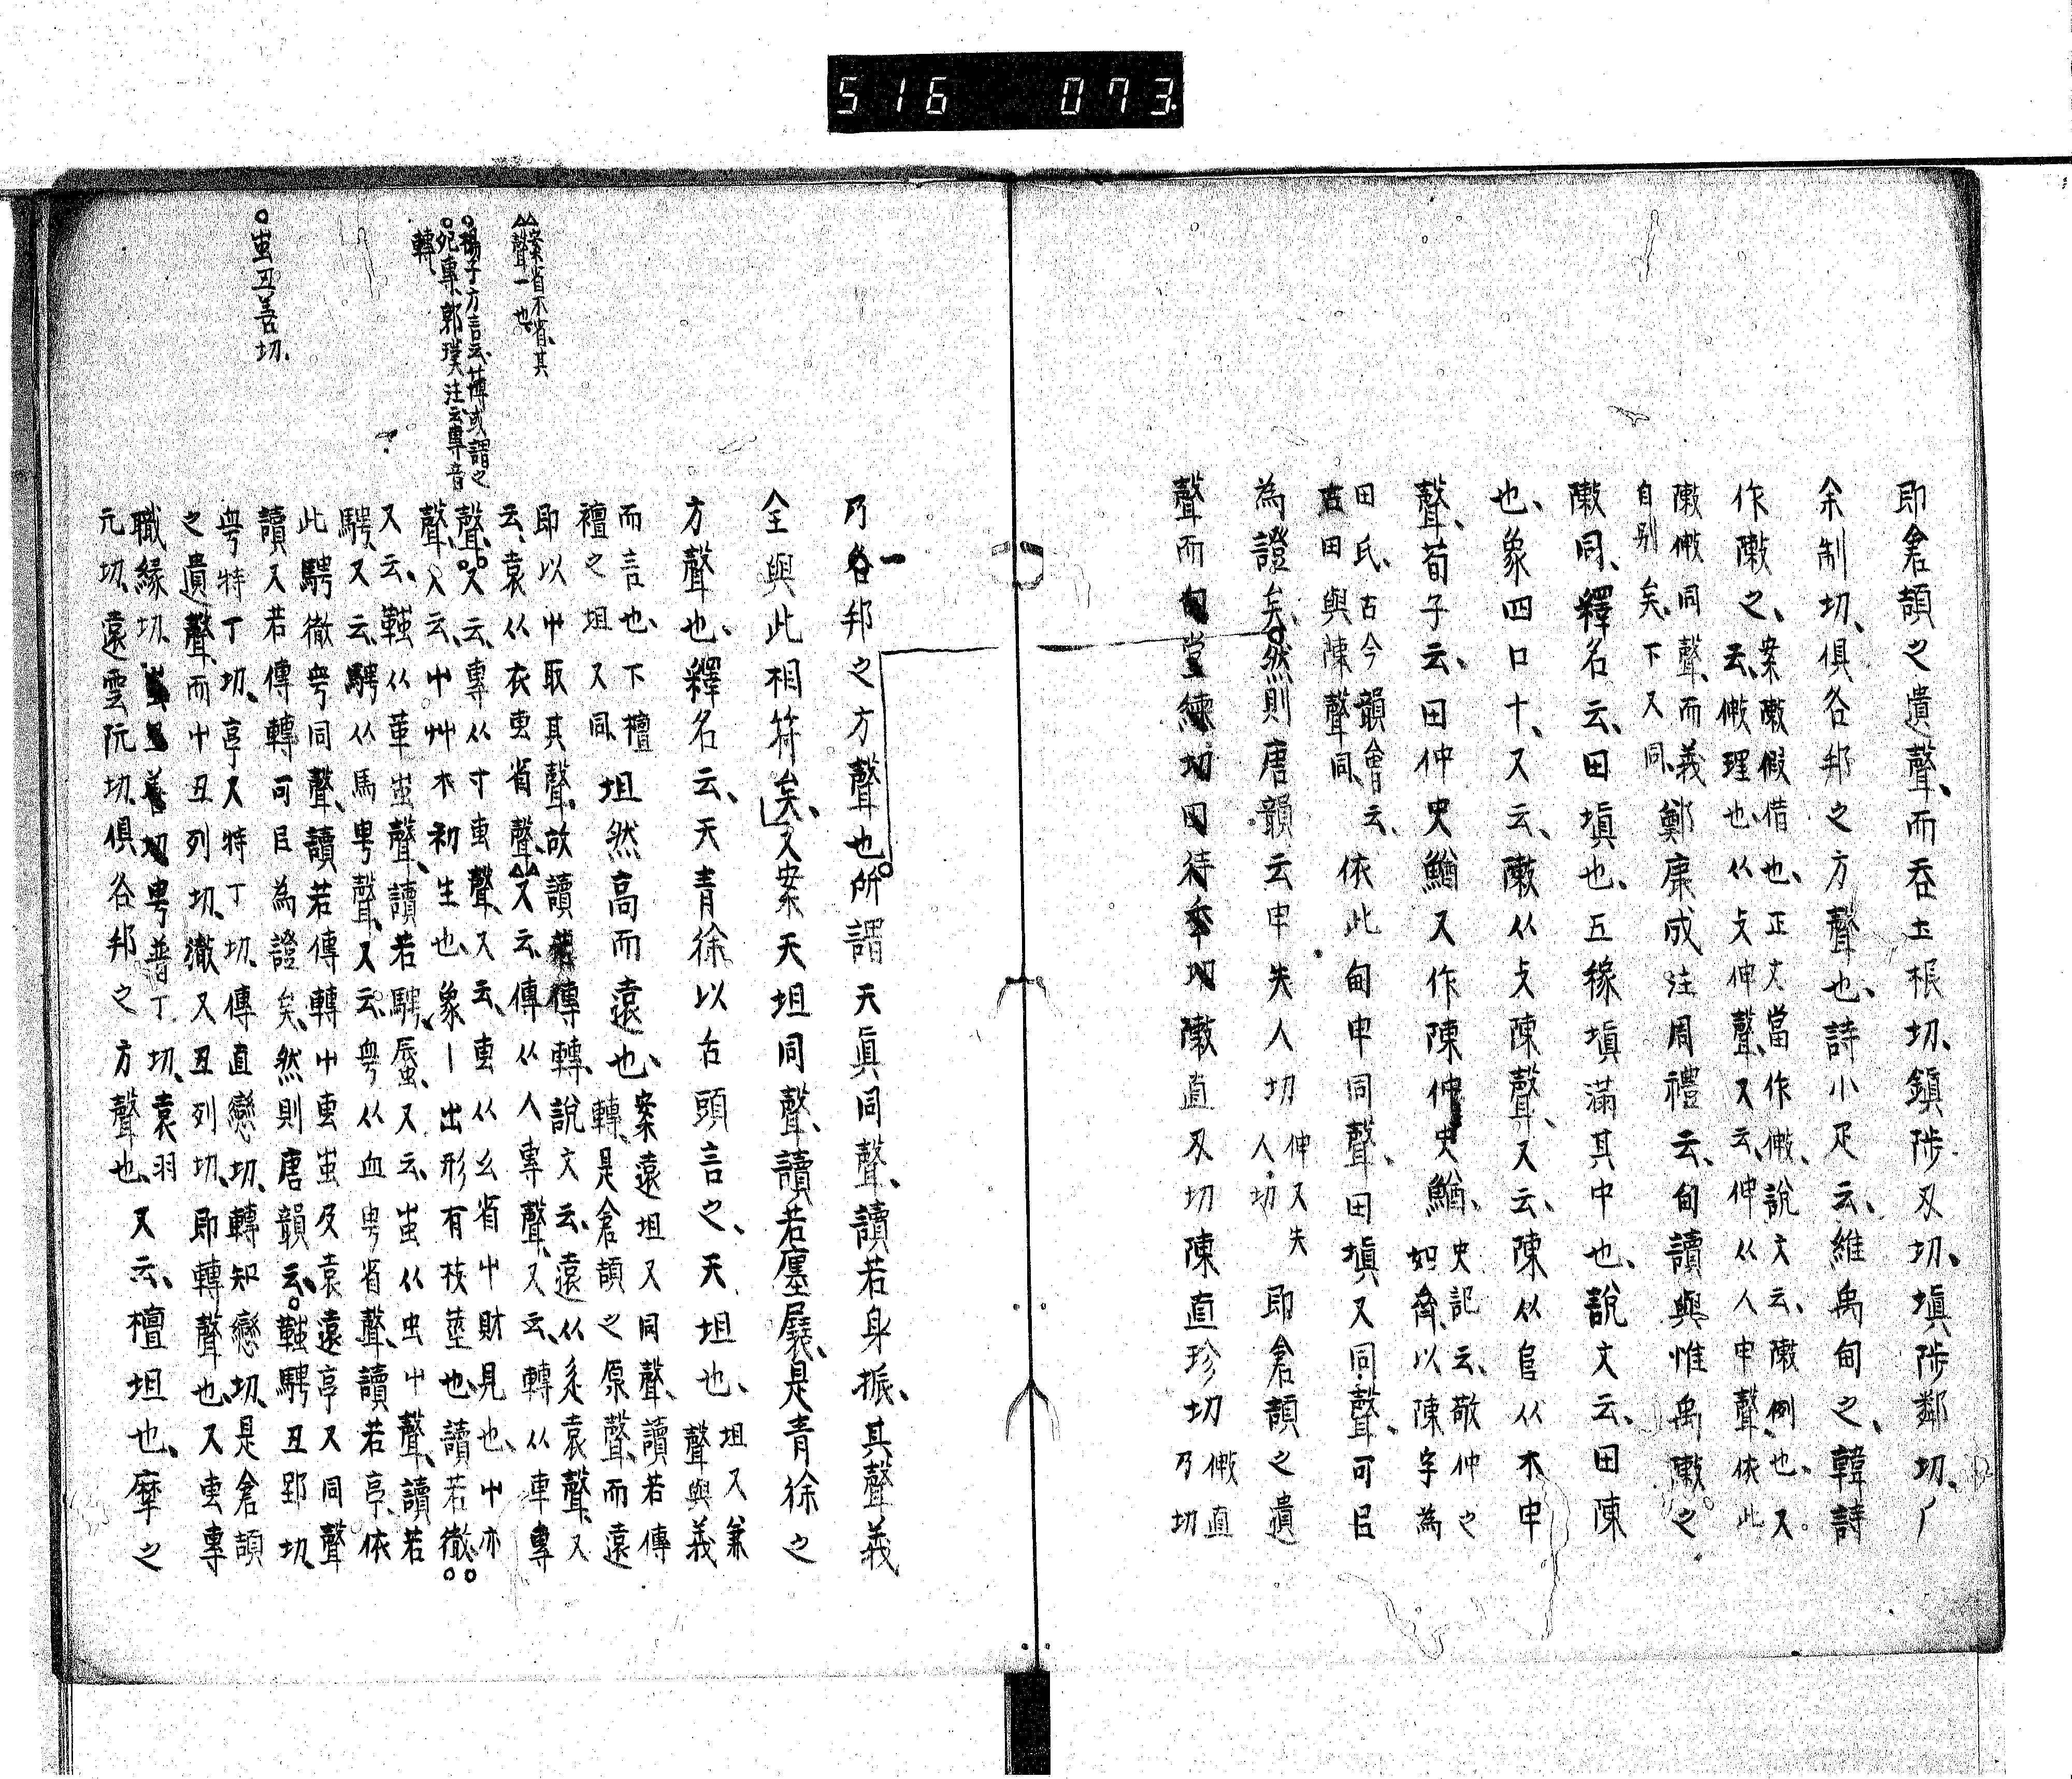 516 073
即倉頡之遺聲、而吞土根切、鎮陟刃切、塡陟鄰切、丿
余制切、俱各邦之方聲也、詩小疋云、維禹甸之、韓詩
作敶之、案敶假借也、正文當作㪤、說文云、敶例也、又
云、㪤理也、从攴伸聲、又云、伸从人申聲、依此
敶㪤同聲、而義
自别矣、下又同、鄭康成注周禮云、甸讀與惟禹敶之
敶同、釋名云、田塡也、五稼塡滿其中也、說文云、田陳
也、象四口十、又云、敶从攴陳聲、又云、陳从𨸏从木申
聲、荀子云、田仲史鰌又作陳仲史鰌、史記云、敬仲之
如齊、以陳字為
田氏、古今韻會云、
古田與陳聲同、依此甸申同聲、田塡又同聲、可㠯
為證矣、然則唐韻云申失人切伸又失
人切、即倉頡之遺
聲而甸堂練切田待季切敶直刃切陳直珍切㪤直
刃切
乃各邦之方聲也、所謂天眞同聲、讀若身振、其聲義
全與此相符矣、又案天坦同聲、讀若廛展、是青徐之
方聲也、釋名云、天青徐以舌頭言之、天坦也、坦又兼
聲與義
而言也、下檀
檀之坦又同、坦然高而遠也、案遠坦又同聲、讀若傳
轉、是倉頡之原聲、而遠
即以屮取其聲、故讀若傳轉、說文云、遠从辵袁聲、又
云、袁从衣叀省聲、又云、傳从人專聲、又云、轉从車專
聲、又云、專从寸叀聲、又云、叀从幺省屮財見也、屮亦
聲、又云、屮艸木初生也、象丨出形有枝莖也、讀若徹、
又云、𩍜从革蚩聲、讀若騁、蜃、又云、蚩从虫屮聲、讀若
騁、又云、騁从馬甹聲、又云、甹从血甹省聲、讀若亭、依
此騁徹甹同聲、讀若傳轉屮叀蚩及袁遠亭又同聲
讀又若傳轉可㠯為證矣、然則唐韻云、𩍜騁丑郢切、
甹特丁切、亭又特丁切、傳直戀切、轉知戀切、是倉頡
之遺聲、而屮丑列切、徹又丑列切、即轉聲也、又叀專
職緣切、甹普丁切、袁羽
元切、遠雲阮切、俱各邦之方聲也、又云、檀坦也、摩之
案省不省、其
聲一也、
楊子方言云、蒪或謂之
夗專、郭璞注云專音
轉、
蚩丑善切、